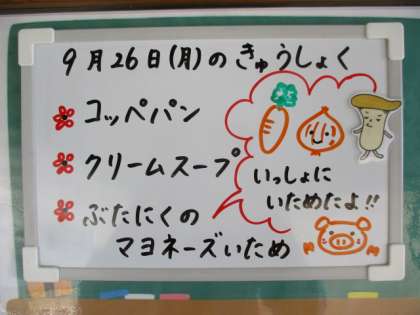 9月26日(月)のきゅうしょく
コッペパン
クリームスープ
ぶたにくの
マヨネーズいため
いっしょに
いためたよ!!